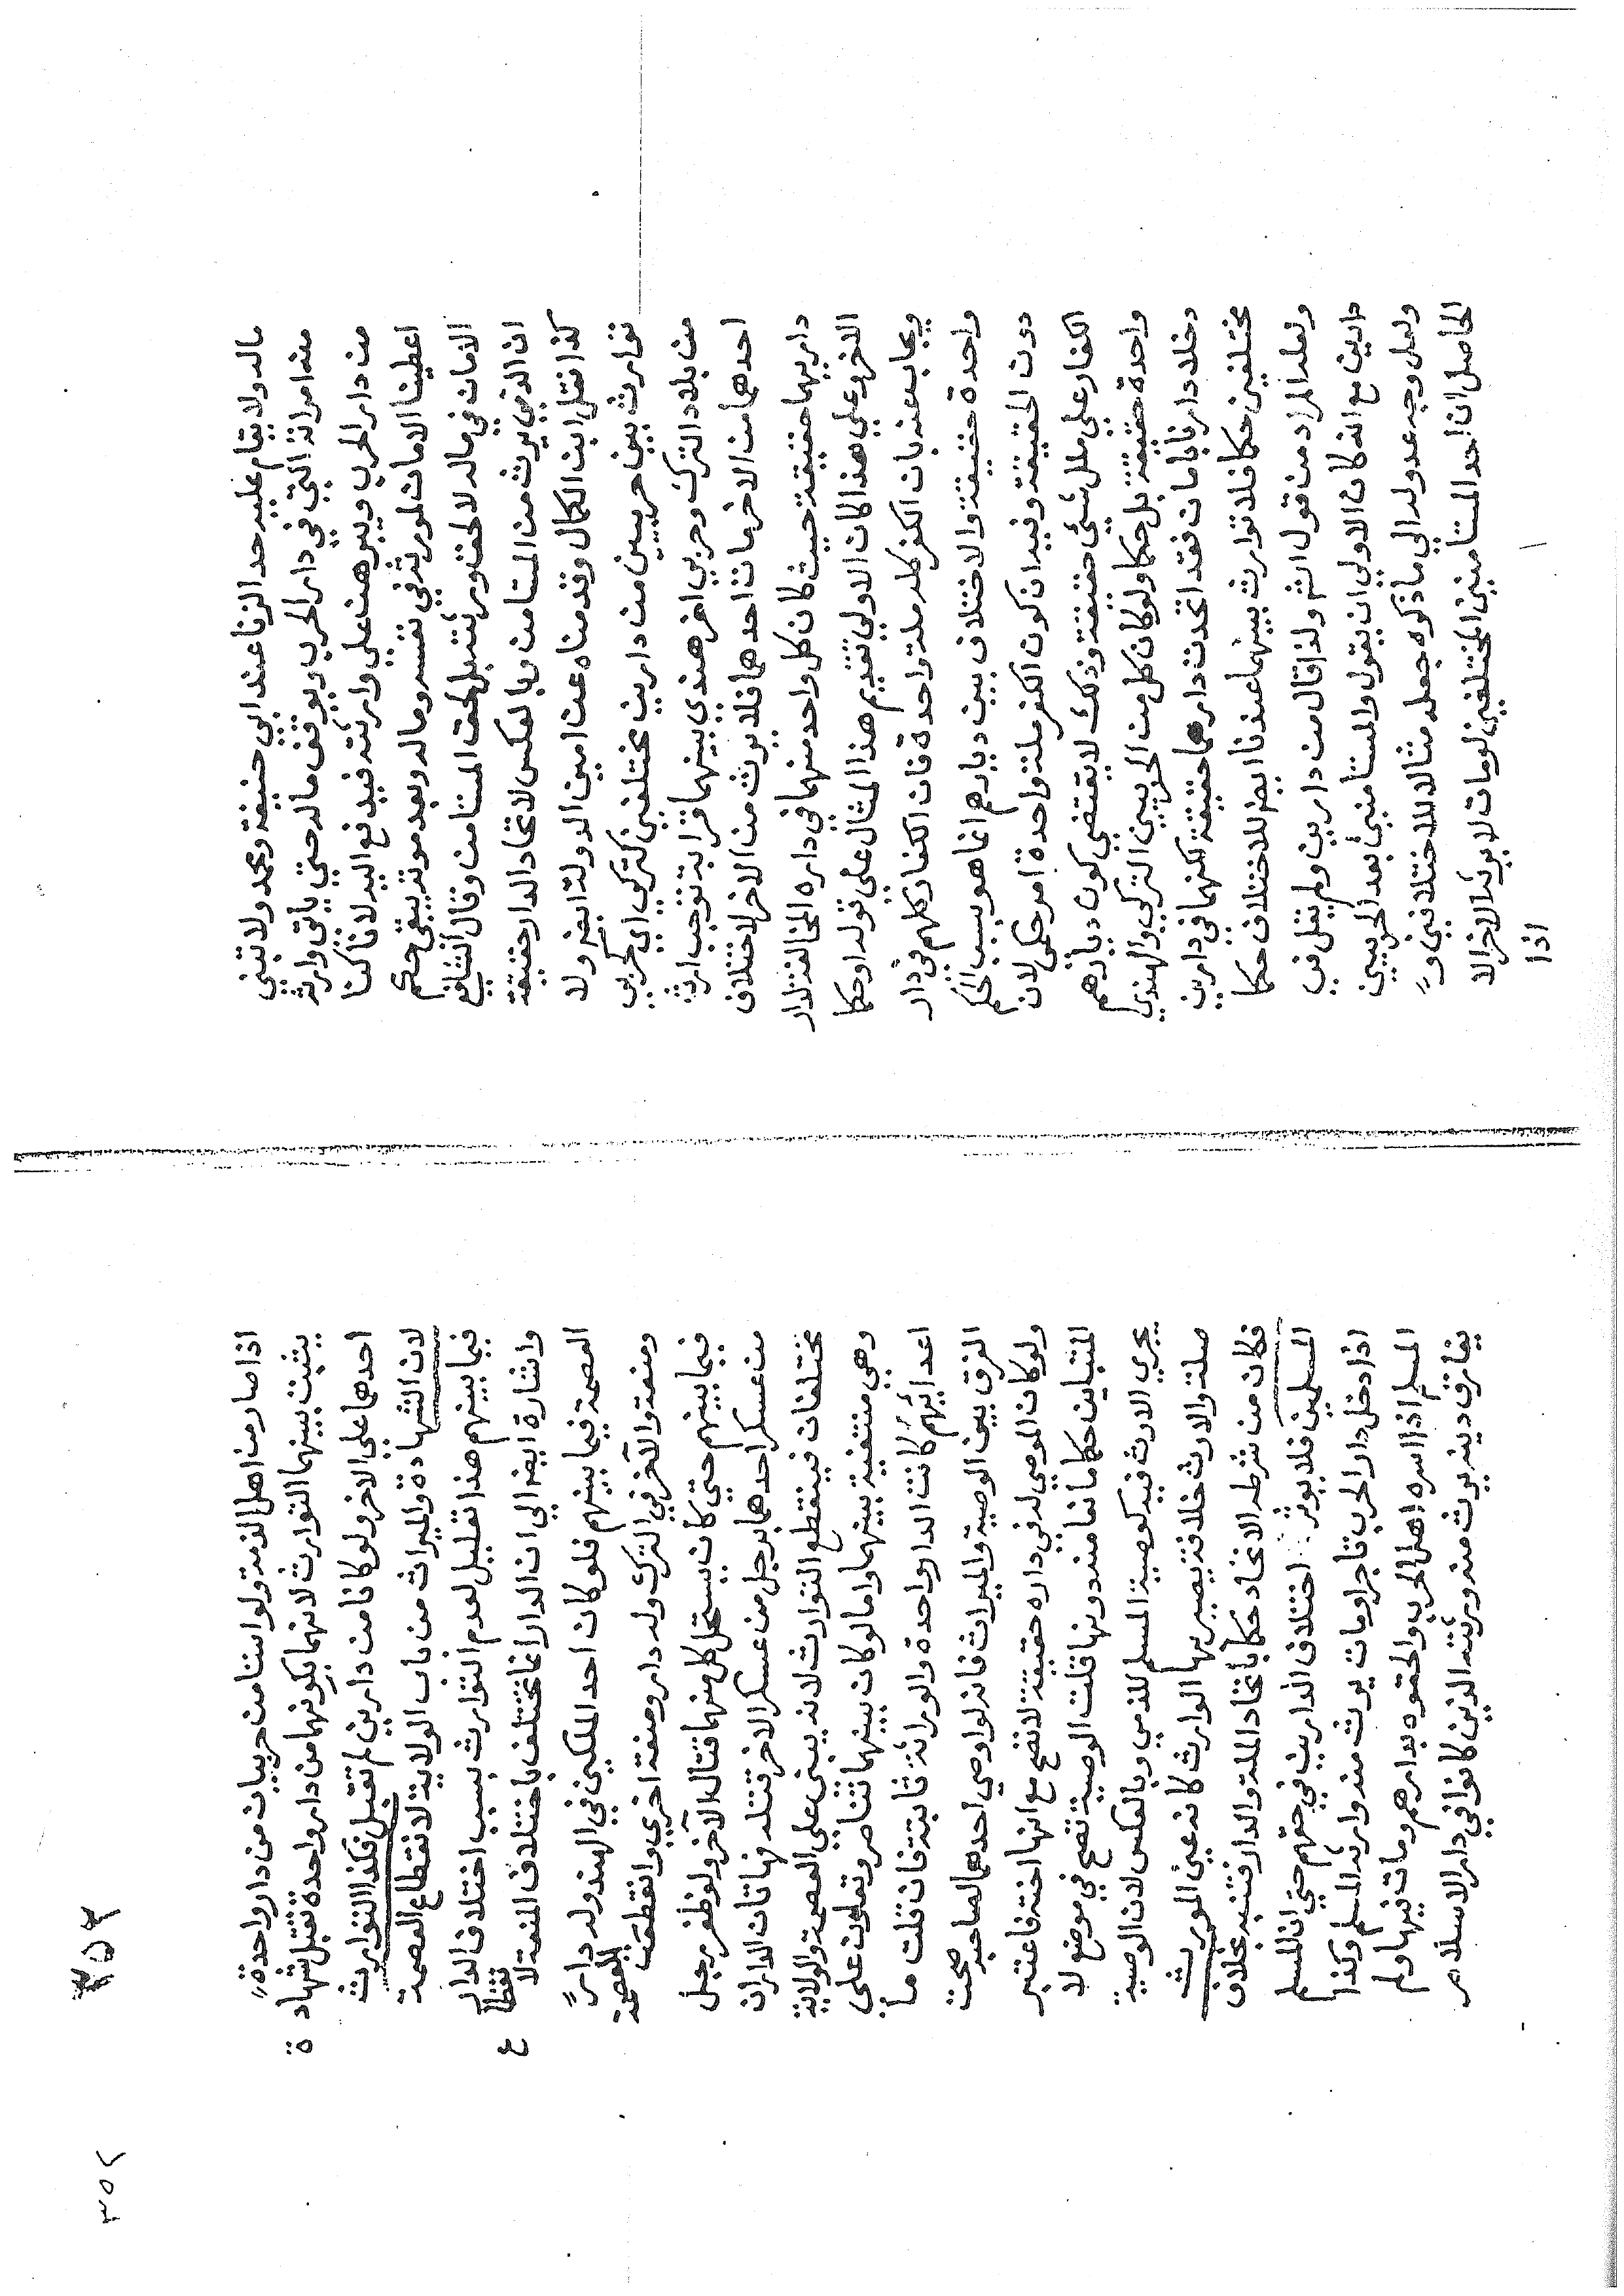 ماله ولا يقام عليه حد الزنا عند ابي حنيفة ومحمد ولا تبني
منه امراته التي في دار الحرب ويوقف ماله حتي ياتي وارثه
من دار الحرب ويبرهن علي وارثته فيدفع اليه لانا كنا
اعطينا الامان لمورثه في نفسه وماله وبعد موته يبقي حكم
الامان في ماله لا لحق ورثته بل لحق المستامن وقال الشافع
ان الذمي يرث من المستامن وبالعكس لاتحاد الدار حقيقة
كذا نقل ابن الكمال وقدمناه عن امين الدولة ايضا ولا
توارث بين حربيين من دارين مختلفين كتركي اي كحربي
من بلاد الترك وحربي اخر هندي بينهما قرابة توجب ارث
احدهما من الاخر مات احدهما فلا يرث من الاخر لاختلاف
داريهما حقيقة حيث كان كل واحد منهما في داره المخالفة لدار
الاخر علي هذا كان الاولي تقديم هذا المثال علي قوله او حكما
ويجاب عنه بان الكفر كله ملة واحدة فان الكفار كلهم في دار
واحدة حقيقة والاختلاف بين ديارهم انما هو بسبب الحكم
دون الحقيقة وفيه ان كون الكفر ملة واحدة امر حكمي لان
الكفار علي ملل شتي حقيقة وذلك لا يقتضي كون ديارهم
واحدة حقيقة بل حكما ولو كان كل من الحربيين التركي والهندي
دخلا دارنا بامان فقد اتحدت دارهما حقيقة لكنهما في دارين
مختلفين حكما فلا توارث بينهما عندنا ايضا للاختلاف حكما
ولعله المراد من قول الش ولذا قال من دارين ولم يقل في
دارين مع انه كان الاولي ان يقول والمستامنين بعد الحربيين
ولعل وجه عدوله الي ما ذكره جعله مثالا للاختلافين و
الحاصل ان احد المستامنين المختلفين لو مات لا يرثه الاخر الا
اذا
٣٥٢
٣٥٢
اذا صار من اهل الذمة ولو استامن حربيان من دار واحدة
يثبت بينهما التوارث لانهما بكونهما من دار واحدة تقبل شهادة
احدهما علي الاخر ولو كانا من دارين لم تقبل فكذا التوارث
لان الشهادة والميراث من باب الولاية لانقطاع العصمة
فيما بينهم هذا تعليل لعدم التوارث بسبب اختلاف الدار
واشارة ايضا الي ان الدار انما تختلف باختلاف المنعة لانقطاع
العصمة فيما بينهم فلو كان احد الملكين في الهند وله دار
ومنعة والاخر في الترك وله دار ومنعة اخري وانقطعت العصمة
فيما بينهم حتي كان يستحل كل منهما قتال الاخر ولو ظفر برجل
من عسكر احدهما برجل من عسكر الاخر قتله فهاتان الداران
مختلفان فينقطع التوارث لانه يبني علي العصمة والولاية
وهي منتفية بينهما واما لو كان بينهما تناصر وتعاون علي
اعدائهم كانت الدار واحدة والوراثة ثابتة فان قلت ما
الفرق بين الوصية والميراث فانه لو اوصي احدهما لصاحبه صحت
ولو كان الموصي له في داره حقيقة لا تصح مع انها اخته فاعتبر
المتباين حكما مانعا منه دونها قلت الوصية تصح في موضع لا
يجري الارث فيه كوصية المسلم للذمي وبالعكس لان الوصية
صلة والارث خلافة يصير بها الوارث كانه عين المورث
فكان من شرطه الاتحاد حكما باتحاد الملة والدار فتنبه بخلاف
المسلمين فلا يوثر اختلاف الدارين في حقهم حتي ان المسلم
اذا دخل دار الحرب تاجرا ومات يرث منه وارثه المسلم وكذا
المسلم اذا اسره اهل الحرب والحقوه بدارهم ومات فيها ولم
يفارق دينه يرث منه ورثته الذين كانوا في دار الاسلام